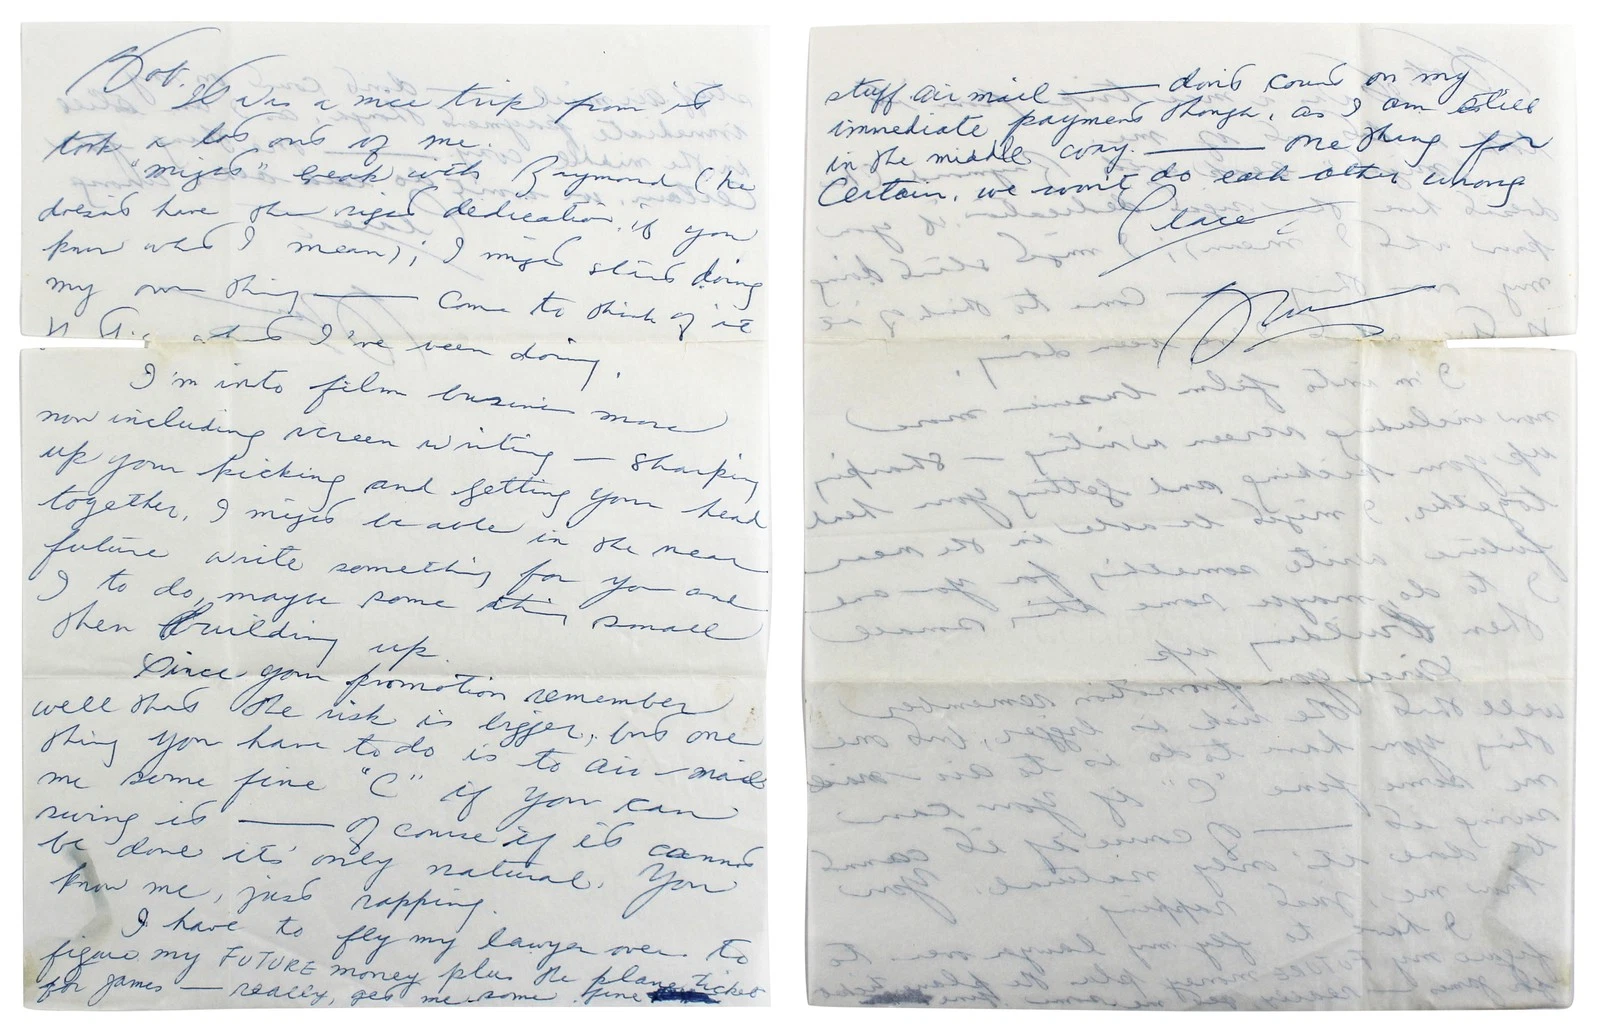 Bob.
It was a nice trip from it
took a lot out of me.
"might" break with Raymond (he
doesn't have the right dedication, if you
know what I mean); I might start doing
my own thing —— come to think of it
what I've been doing.
I'm into film business more
now including screen writing — sharping
up your kicking and getting your head
together, I might be able in the near
future write something for you and
I to do, maybe some thing small
then building up.
Since your promotion remember
well that the risk is bigger, but one
thing you have to do is to air-mail
me some fine "C" if you can
swing it —— of course if it cannot
be done it's only natural. You
know me, just rapping.
I have to fly my lawyer over to
figure my FUTURE money plus the plane ticket
for James — really, get me some fine
stuff air mail —— don't count on my
immediate payment though, as I am still
in the middle way. —— one thing for
certain, we won't do each other wrong
Peace